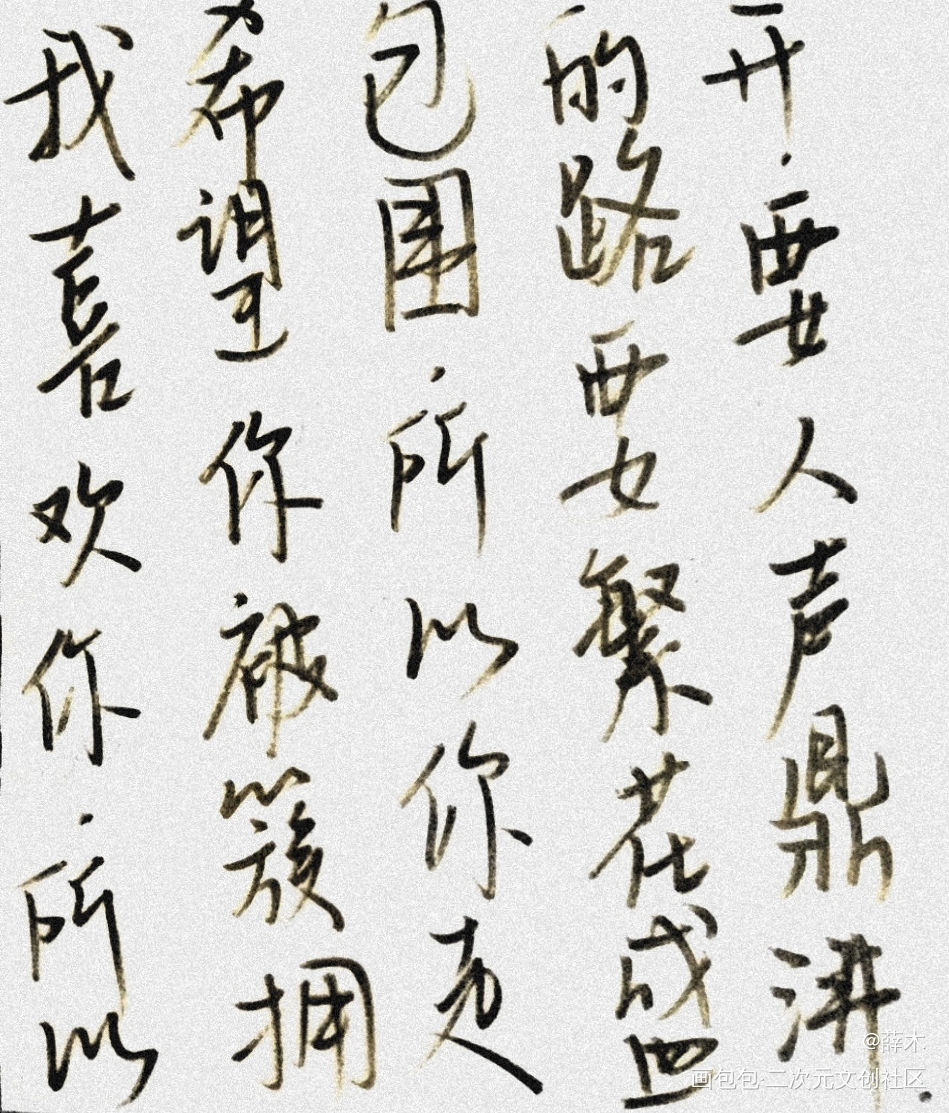 我喜欢你.所以
希望你被簇拥
包围.所以你走
的路要繁花盛
开.要人声鼎沸.
@薛木
画包包·二次元文创社区